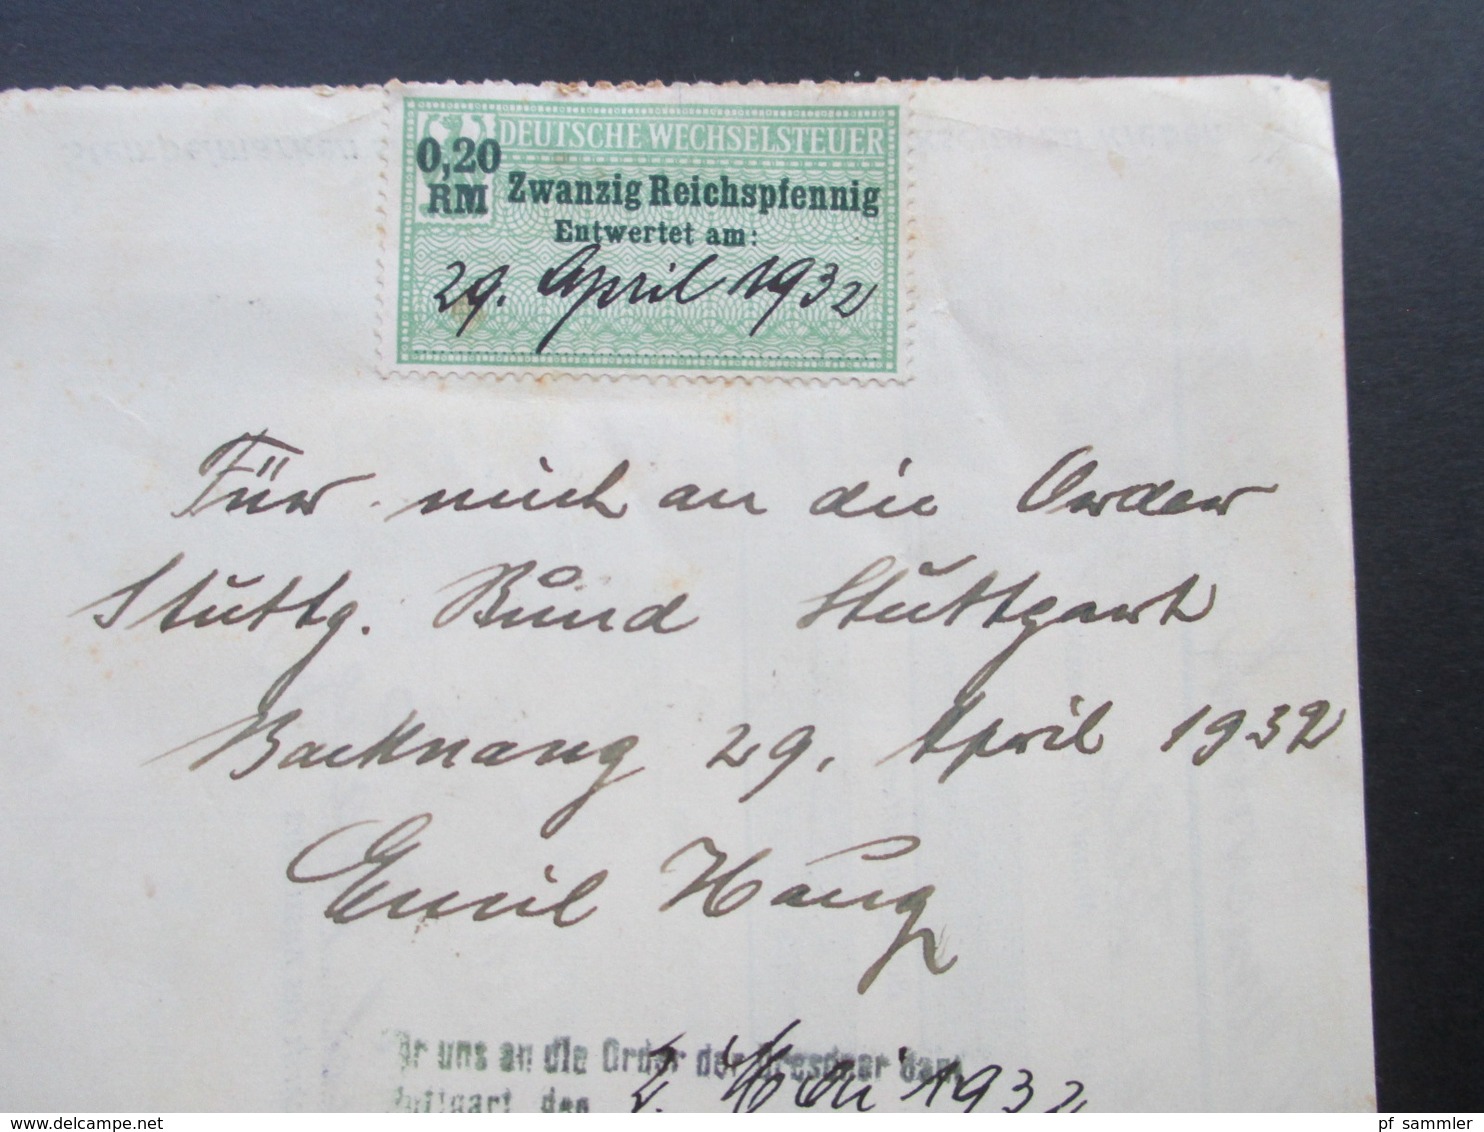 Stempelmarken
DEUTSCHE WECHSELSTEUER
0,20
RM
Zwanzig Reichspfennig
Entwertet am:
29. April 1932
Für mich an die Order
Stuttg. Bund Stuttgart
Backnang 29. April 1932
Emil Haug
uns an die Order der Dresdner
den 2. Mai 1932
pf_sammler